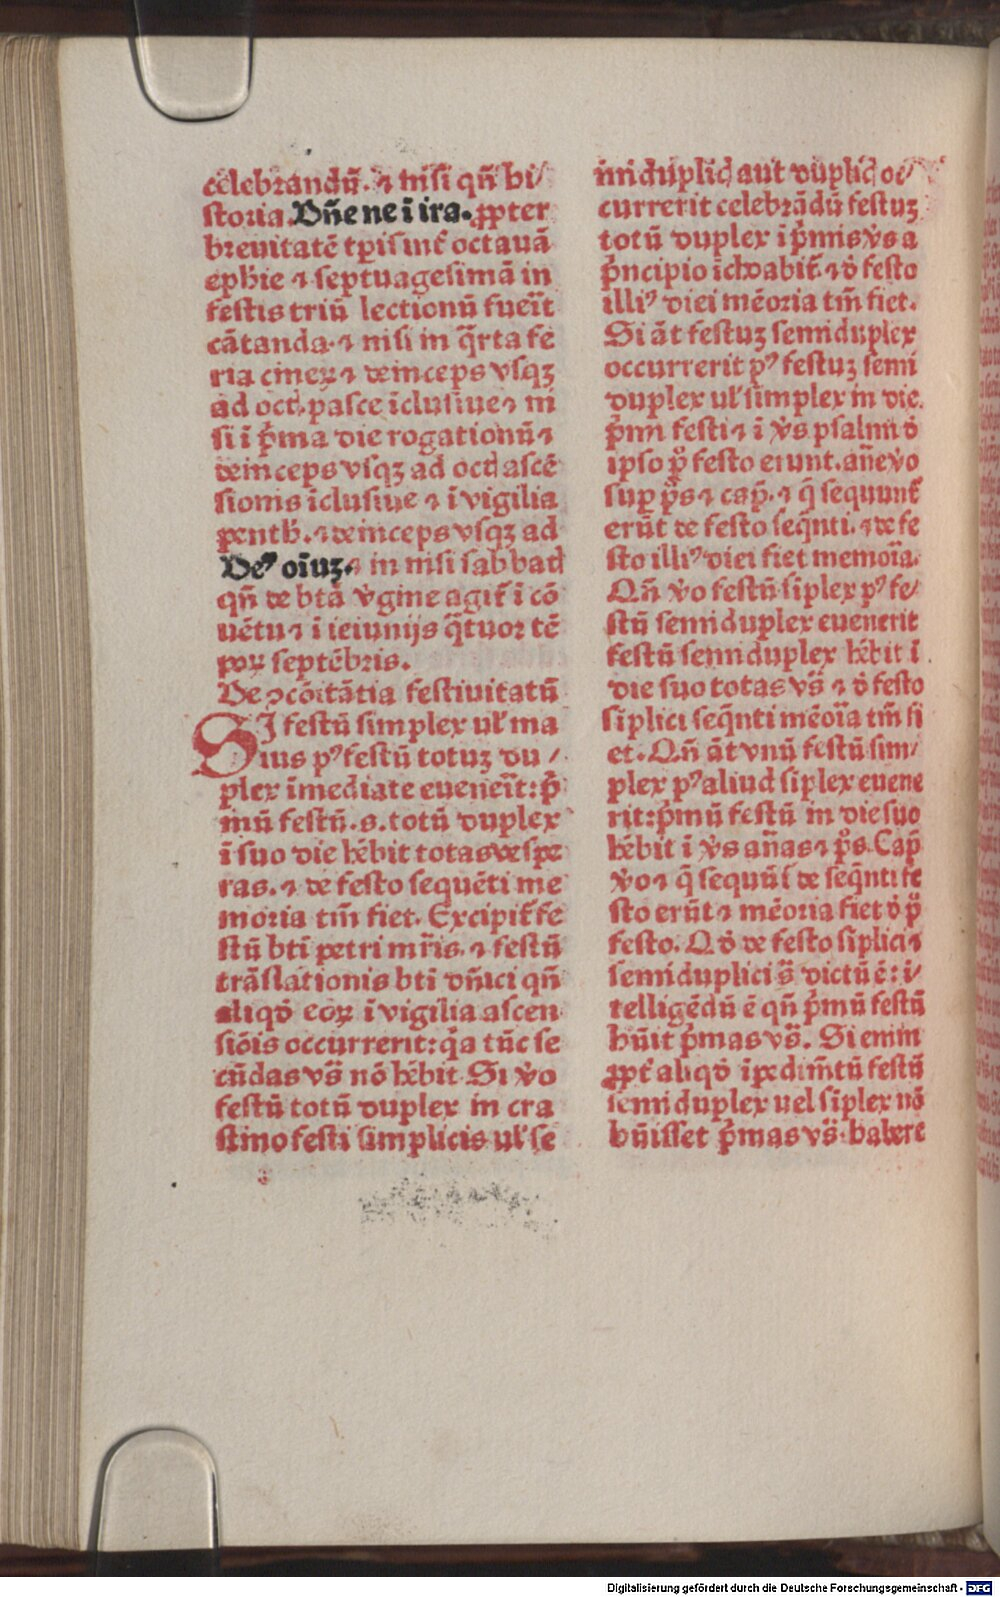 celebrandū. ⁊ nisi qn̄ hi/
storia. Dn̄e ne ī ira. ꝓpter
breuitatē tp̄is int̄ octauā
ephie ⁊ septuagesimā in
festis triū lectionū fuer̄it
cātanda. ⁊ nisi in q̄rta fe
ria cineꝝ ⁊ deinceps vsqꝫ
ad oct. pasce īclusiue ⁊ ni
si ī p̄ma die rogationū ⁊
deinceps vsqꝫ ad oct ascē
sionis īclusiue ⁊ ī vigilia
penth̄. ⁊ deinceps vsqꝫ ad
Deꝰ oīuꝫ. ⁊ in nisi sabbad
qn̄ de btā v̄gine agit̄ ī cō
uētu ⁊ ī ieiunijs q̄tuor tē
poꝝ septēbris.
De ꝯcōitātia festiuitatū
SI festū simplex ul̓ ma
ius pꝰ festū totuꝫ du/
plex īmediate eueneīt: p̄
mū festū. s. totū duplex
ī suo die hēbit totas vespe
ras. ⁊ de festo sequēti me
moria tm̄ fiet. Excipit̄ fe
stū bti petri mr̄is. ⁊ festū
trāslationis bti dn̄ici qn̄
aliqd̄ eoꝝ ī vigilia ascen
siōis occurrerit: q̄a tūc se
cūdas vs̄ nō hēbit. Si v̄o
festū totū duplex in cra
stino festi simplicis ul̓ se
mi duplic̄ aut duplic̄ oc/
currerit celebrādū festuꝫ
totū duplex ī p̄mis v̄s a
p̄ncipio īchoabit̄. ⁊ d̄ festo
illiꝰ diei mēoria tm̄ fiet.
Si āt festuꝫ semiduplex
occurrerit pꝰ festuꝫ semi
duplex ul̓ simplex in die
p̄mi festi ⁊ ī v̄s psalmi d̄
ipso p̄ festo erunt. an̄e v̄o
sup̄ p̄s ⁊ cap̄. ⁊ q̄ sequunt̄
erūt de festo seq̄nti. ⁊ de fe
sto illiꝰ diei fiet memoīa.
Qn̄ v̄o festū siplex pꝰ fe/
stū semiduplex euenerit
festū semiduplex hēbit ī
die suo totas vs̄ ⁊ d̄ festo
siplici seq̄nti mēoīa tm̄ fi
et. Qn̄ āt vnū festū sim/
plex pꝰ aliud siplex euene
rit: p̄mū festū in die suo
hēbit ī v̄s an̄as ⁊ p̄s. Cap̄
v̄o ⁊ q̄ sequūt̄ de seq̄nti fe
sto erūt ⁊ mēoria fiet d̄ p̄
festo. Qd̄ de festo siplici ⁊
semiduplici s̄ dictū ē: i/
telligēdū ē qn̄ p̄mū festū
hūit p̄mas vs̄. Si enim
ꝓpt̄ aliqd̄ īpedim̄tū festū
semiduplex uel siplex nō
hūisset p̄mas vs̄. habere
Digitalisierung gefördert durch die Deutsche Forschungsgemeinschaft - DFG